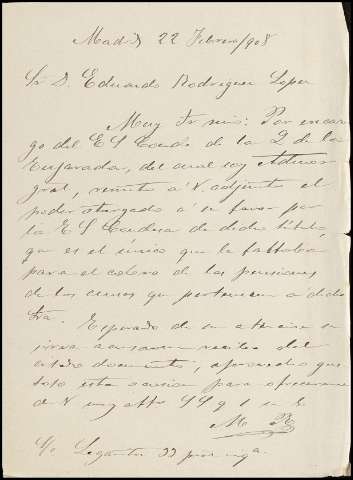 Madrid 22 Febrero/908
Sr D. Eduardo Rodriguez Lopez
Muy Sr mio: Por encar
go del E S Conde de la Q de la
Enjarada, del cual soy Admor
gral, remito á V. adjunto el
poder otorgado á su favor por
la E S Condesa de dicho título,
que es el único que le faltaba
para el cobro de las pensiones
de los censos que pertenecen á dicha
Sra. Esperando de su atencion se
sirva acusarme recibo del
citado documento, aprovecho gus
toso esta ocasion para ofrecerme
de V muy atto SS q b s m
M R
S/c Leganitos 33